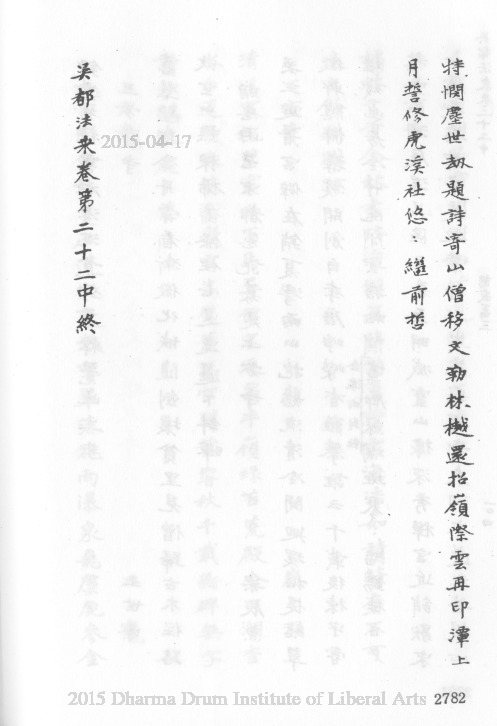 特憫塵世劫題詩寄山僧移文勒林樾還招嶺際雲再印潭上
月誓修虎溪社悠〻繼前哲
吳都法乘卷第二十二中終
2015-04-17
2015 Dharma Drum Institute of Liberal Arts
2782